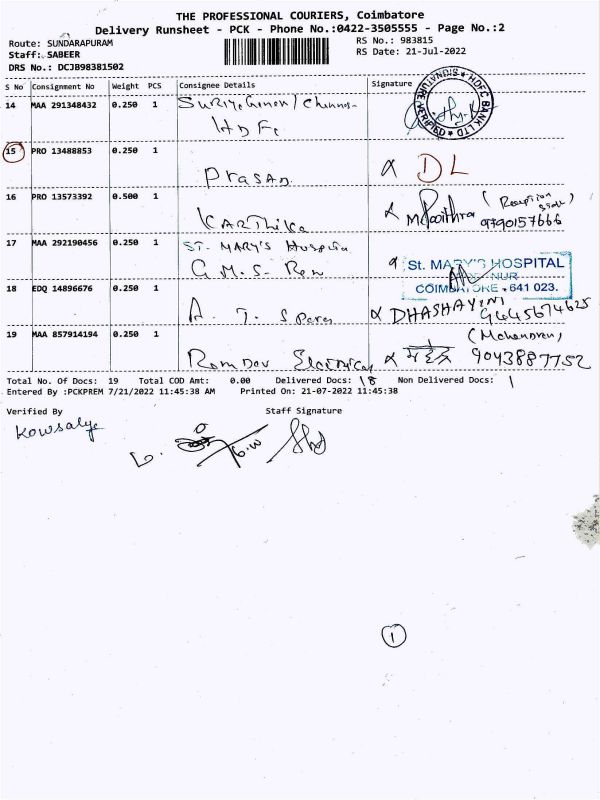 THE PROFESSIONAL COURIERS, Coimbatore
Delivery Runsheet - PCK - Phone No.:0422-3505555 - Page No.:2
Route: SUNDARAPURAM
RS No.: 983815
Staff: SABEER
RS Date: 21-Jul-2022
DRS No.: DCJB98381502
S No Consignment No Weight PCS Consignee Details Signature
14 MAA 291348432 0.250 1
SIGNATURE VERIFIED HDFC BANK LTD
15 PRO 13488853 0.250 1
Prasan DL
16 PRO 13573392 0.500 1
Karthika (Reception 9790157666
17 MAA 292190456 0.250 1 ST. MARY'S
G.M.S. St. MARY'S HOSPITAL
COIMBATORE - 641 023.
18 EDQ 14896676 0.250 1
A. DHASHAYINI 9445674625
19 MAA 857914194 0.250 1 (Mahendren)
Electrical महेंद्र 9043887752
Total No. Of Docs: 19 Total COD Amt: 0.00 Delivered Docs: 18 Non Delivered Docs: 1
Entered By :PCKPREM 7/21/2022 11:45:38 AM Printed On: 21-07-2022 11:45:38
Verified By Staff Signature
Kowsalye
1